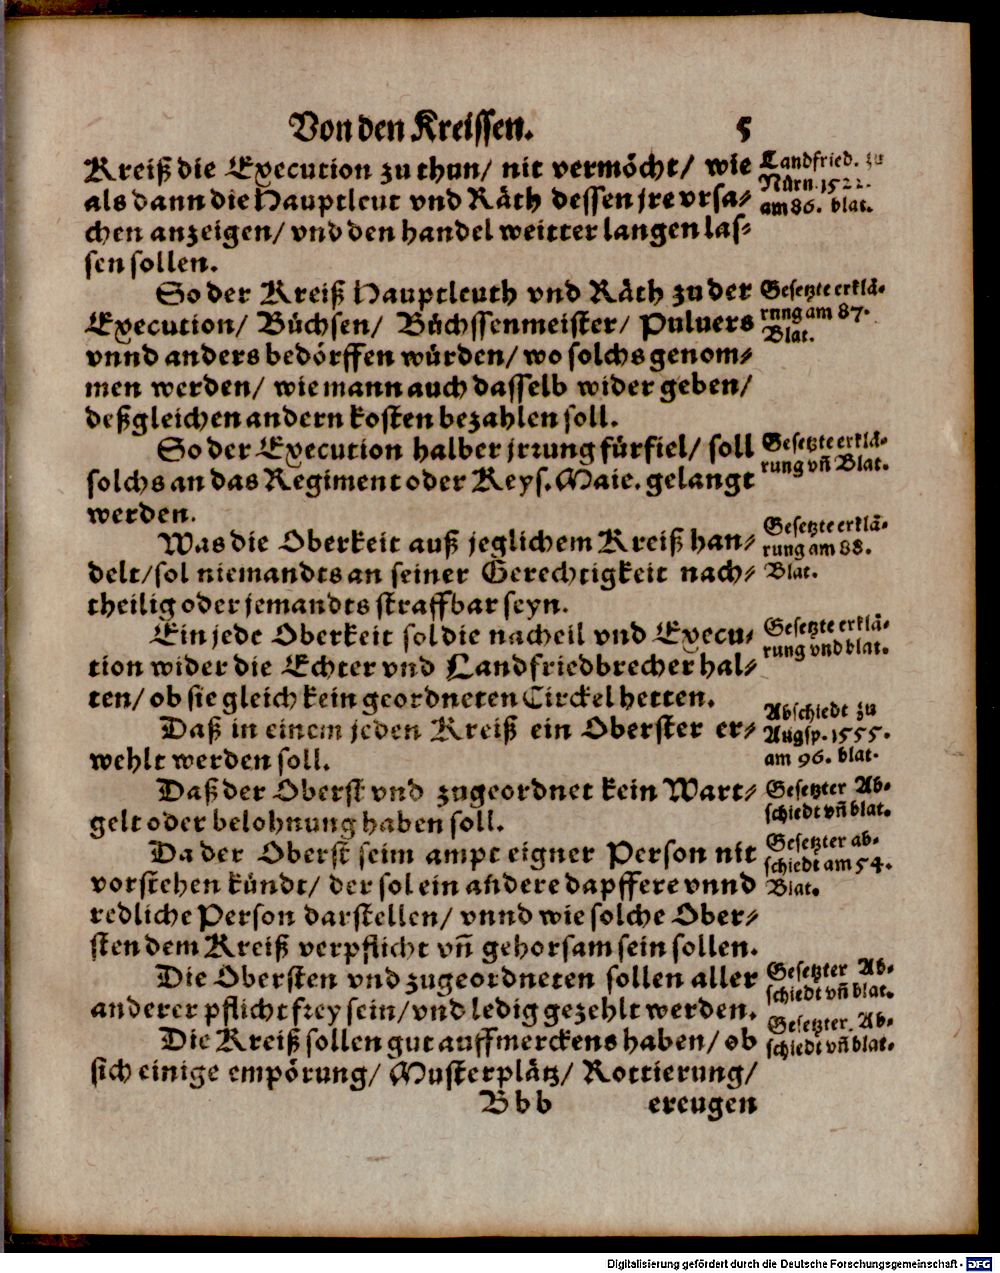 Von den Kreissen. 5
Kreiß die Execution zu thun/ nit vermöcht/ wie
als dann die Hauptleut vnd Räth dessen jre vrsa-
chen anzeigen/ vnd den handel weitter langen las-
sen sollen.
Landfried. zu
Nürn. 1522.
am 86. blat.
So der Kreiß Hauptleuth vnd Räth zu der
Execution/ Büchsen/ Büchssenmeister/ Puluers
vnnd anders bedörffen würden/ wo solchs genom-
men werden/ wie mann auch dasselb wider geben/
deßgleichen andern kosten bezahlen soll.
Gesetzte erklä-
rung am 87.
Blat.
So der Execution halber jrrung fürfiel/ soll
solchs an das Regiment oder Keys. Maie. gelangt
werden.
Gesetzte erklä-
rung vñ Blat.
Was die Oberkeit auß jeglichem Kreiß han-
delt/ sol niemandts an seiner Gerechtigkeit nach-
theilig oder jemandts straffbar seyn.
Gesetzte erklä-
rung am 88.
Blat.
Ein jede Oberkeit sol die nacheil vnd Execu-
tion wider die Echter vnd Landfriedbrecher hal-
ten/ ob sie gleich kein geordneten Circkel hetten.
Gesetzte erklä-
rung vnd blat.
Daß in einem jeden Kreiß ein Oberster er-
wehlt werden soll.
Abschiedt zu
Augsp. 1555.
am 96. blat.
Daß der Oberst vnd zugeordnet kein Wart-
gelt oder belohnung haben soll.
Gesetzter Ab-
schiedt vñ blat.
Da der Oberst seim ampt eigner Person nit
vorstehen kündt/ der sol ein andere dapffere vnnd
redliche Person darstellen/ vnnd wie solche Ober-
sten dem Kreiß verpflicht vñ gehorsam sein sollen.
Gesetzter ab-
schiedt am 54.
Blat.
Die Obersten vnd zugeordneten sollen aller
anderer pflicht frey sein/ vnd ledig gezehlt werden.
Gesetzter Ab-
schiedt vñ blat.
Die Kreiß sollen gut auffmerckens haben/ ob
sich einige empörung/ Musterplätz/ Rottierung/
Gesetzter. Ab-
schiedt vñ blat.
Bbb ereugen
Digitalisierung gefördert durch die Deutsche Forschungsgemeinschaft - DFG